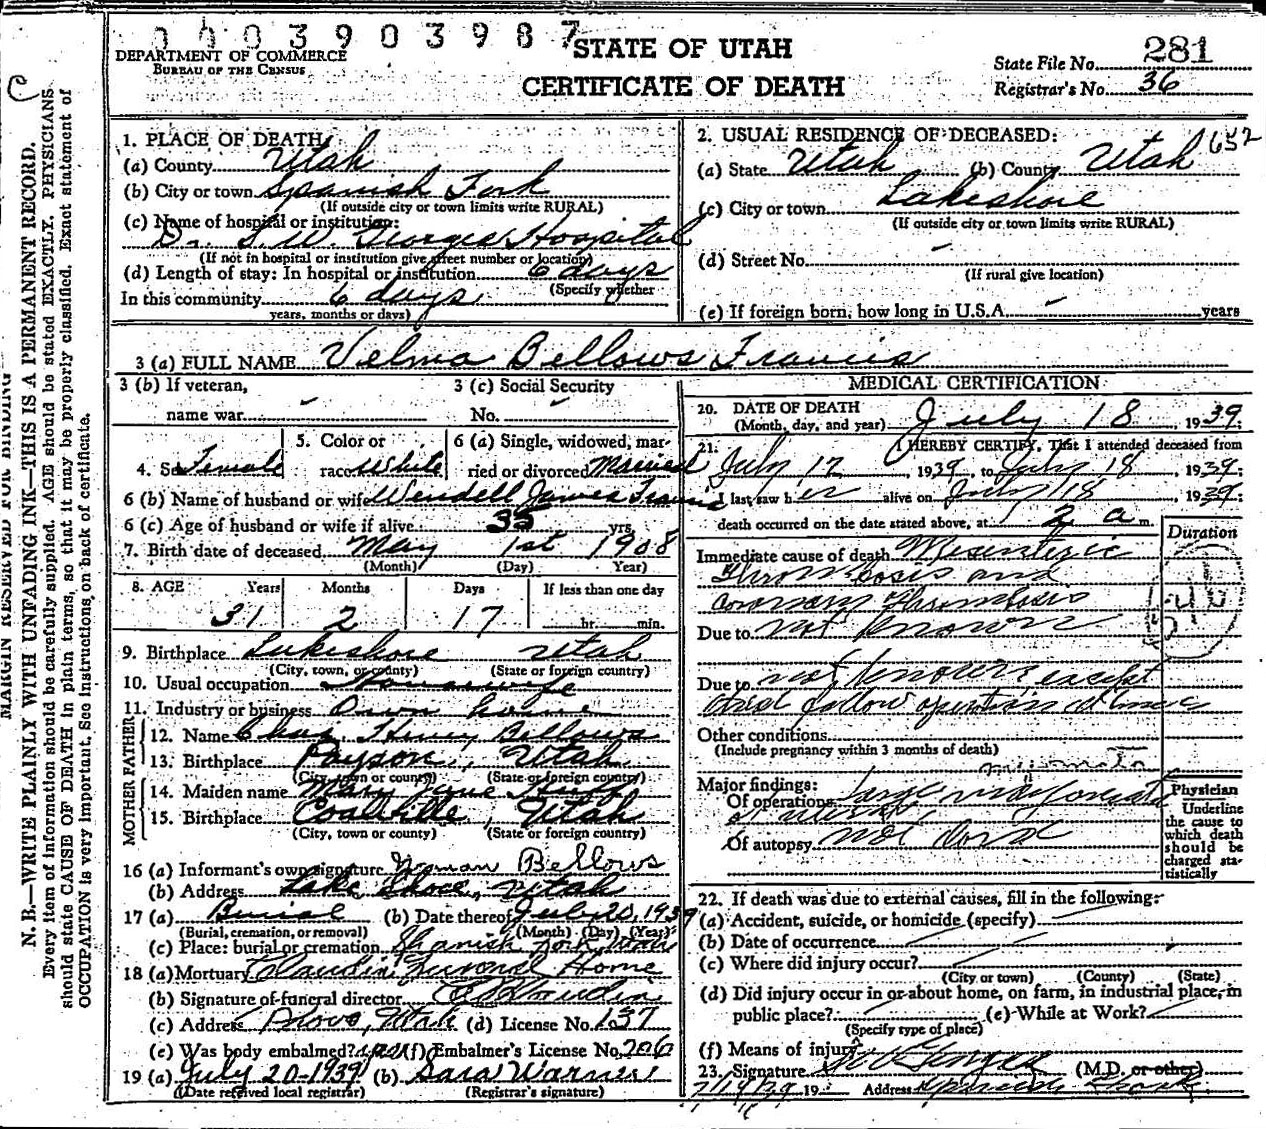 0003903987
DEPARTMENT OF COMMERCE
BUREAU OF THE CENSUS
STATE OF UTAH
CERTIFICATE OF DEATH
State File No. 281
Registrar's No. 36
MARGIN RESERVED FOR BINDING
N. B.—WRITE PLAINLY WITH UNFADING INK—THIS IS A PERMANENT RECORD.
Every item of information should be carefully supplied. AGE should be stated EXACTLY. PHYSICIANS
should state CAUSE OF DEATH in plain terms, so that it may be properly classified. Exact statement of
OCCUPATION is very important. See instructions on back of certificate.
1. PLACE OF DEATH
(a) County Utah
(b) City or town Spanish Fork
(If outside city or town limits write RURAL)
(c) Name of hospital or institution:
Hospital
(If not in hospital or institution give street number or location)
(d) Length of stay: In hospital or institution 6 days
(Specify whether
In this community 6 days
years, months or days)
2. USUAL RESIDENCE OF DECEASED: 652
(a) State Utah (b) County Utah
(c) City or town Lakeshore
(If outside city or town limits write RURAL)
(d) Street No. -
(If rural give location)
(e) If foreign born, how long in U.S.A. - years
3 (a) FULL NAME Velma Bellows Francis
3 (b) If veteran,
name war -
3 (c) Social Security
No. -
4. Sex Female
5. Color or
race White
6 (a) Single, widowed, mar-
ried or divorced Married
6 (b) Name of husband or wife Wendell James Francis
6 (c) Age of husband or wife if alive 35 yrs.
7. Birth date of deceased May 1st 1908
(Month) (Day) Year)
8. AGE Years Months Days If less than one day
31 2 17 hr. min.
9. Birthplace Lakeshore Utah
(City, town, or county) (State or foreign country)
10. Usual occupation Housewife
11. Industry or business Own home
FATHER
12. Name Chas. Henry Bellows
13. Birthplace Payson, Utah
(City, town or county) (State or foreign country)
MOTHER
14. Maiden name Mary Jane Huff
15. Birthplace Coalville, Utah
(City, town or county) (State or foreign country)
16 (a) Informant's own signature Bellows
(b) Address Lake Shore, Utah
17 (a) Burial (b) Date thereof July 20, 1939
(Burial, cremation, or removal) (Month) (Day) (Year)
(c) Place: burial or cremation Spanish Fork, Utah
18 (a) Mortuary Claudin Funeral Home
(b) Signature of funeral director
(c) Address Provo, Utah (d) License No. 137
(e) Was body embalmed? yes (f) Embalmer's License No. 206
19 (a) July 20-1939 (b) Sara Warner
(Date received local registrar) (Registrar's signature)
MEDICAL CERTIFICATION
20. DATE OF DEATH
(Month, day, and year) July 18, 1939.
21. I HEREBY CERTIFY, That I attended deceased from
July 12, 1939, to July 18, 1939;
I last saw her alive on July 18, 1939;
death occurred on the date stated above, at 2 a m.
Duration
Immediate cause of death Mesenteric
thrombosis and
coronary thrombosis
Due to not known
Due to not known except
that follow operation
Other conditions
(Include pregnancy within 3 months of death)
Major findings:
Of operations large
Of autopsy not done
Physician
Underline
the cause to
which death
should be
charged sta-
tistically
22. If death was due to external causes, fill in the following:
(a) Accident, suicide, or homicide (specify)
(b) Date of occurrence
(c) Where did injury occur?
(City or town) (County) (State)
(d) Did injury occur in or about home, on farm, in industrial place, in
public place? (e) While at Work?
(Specify type of place)
(f) Means of injury
23. Signature (M.D. or other)
7/19/39 19 Address Spanish Fork